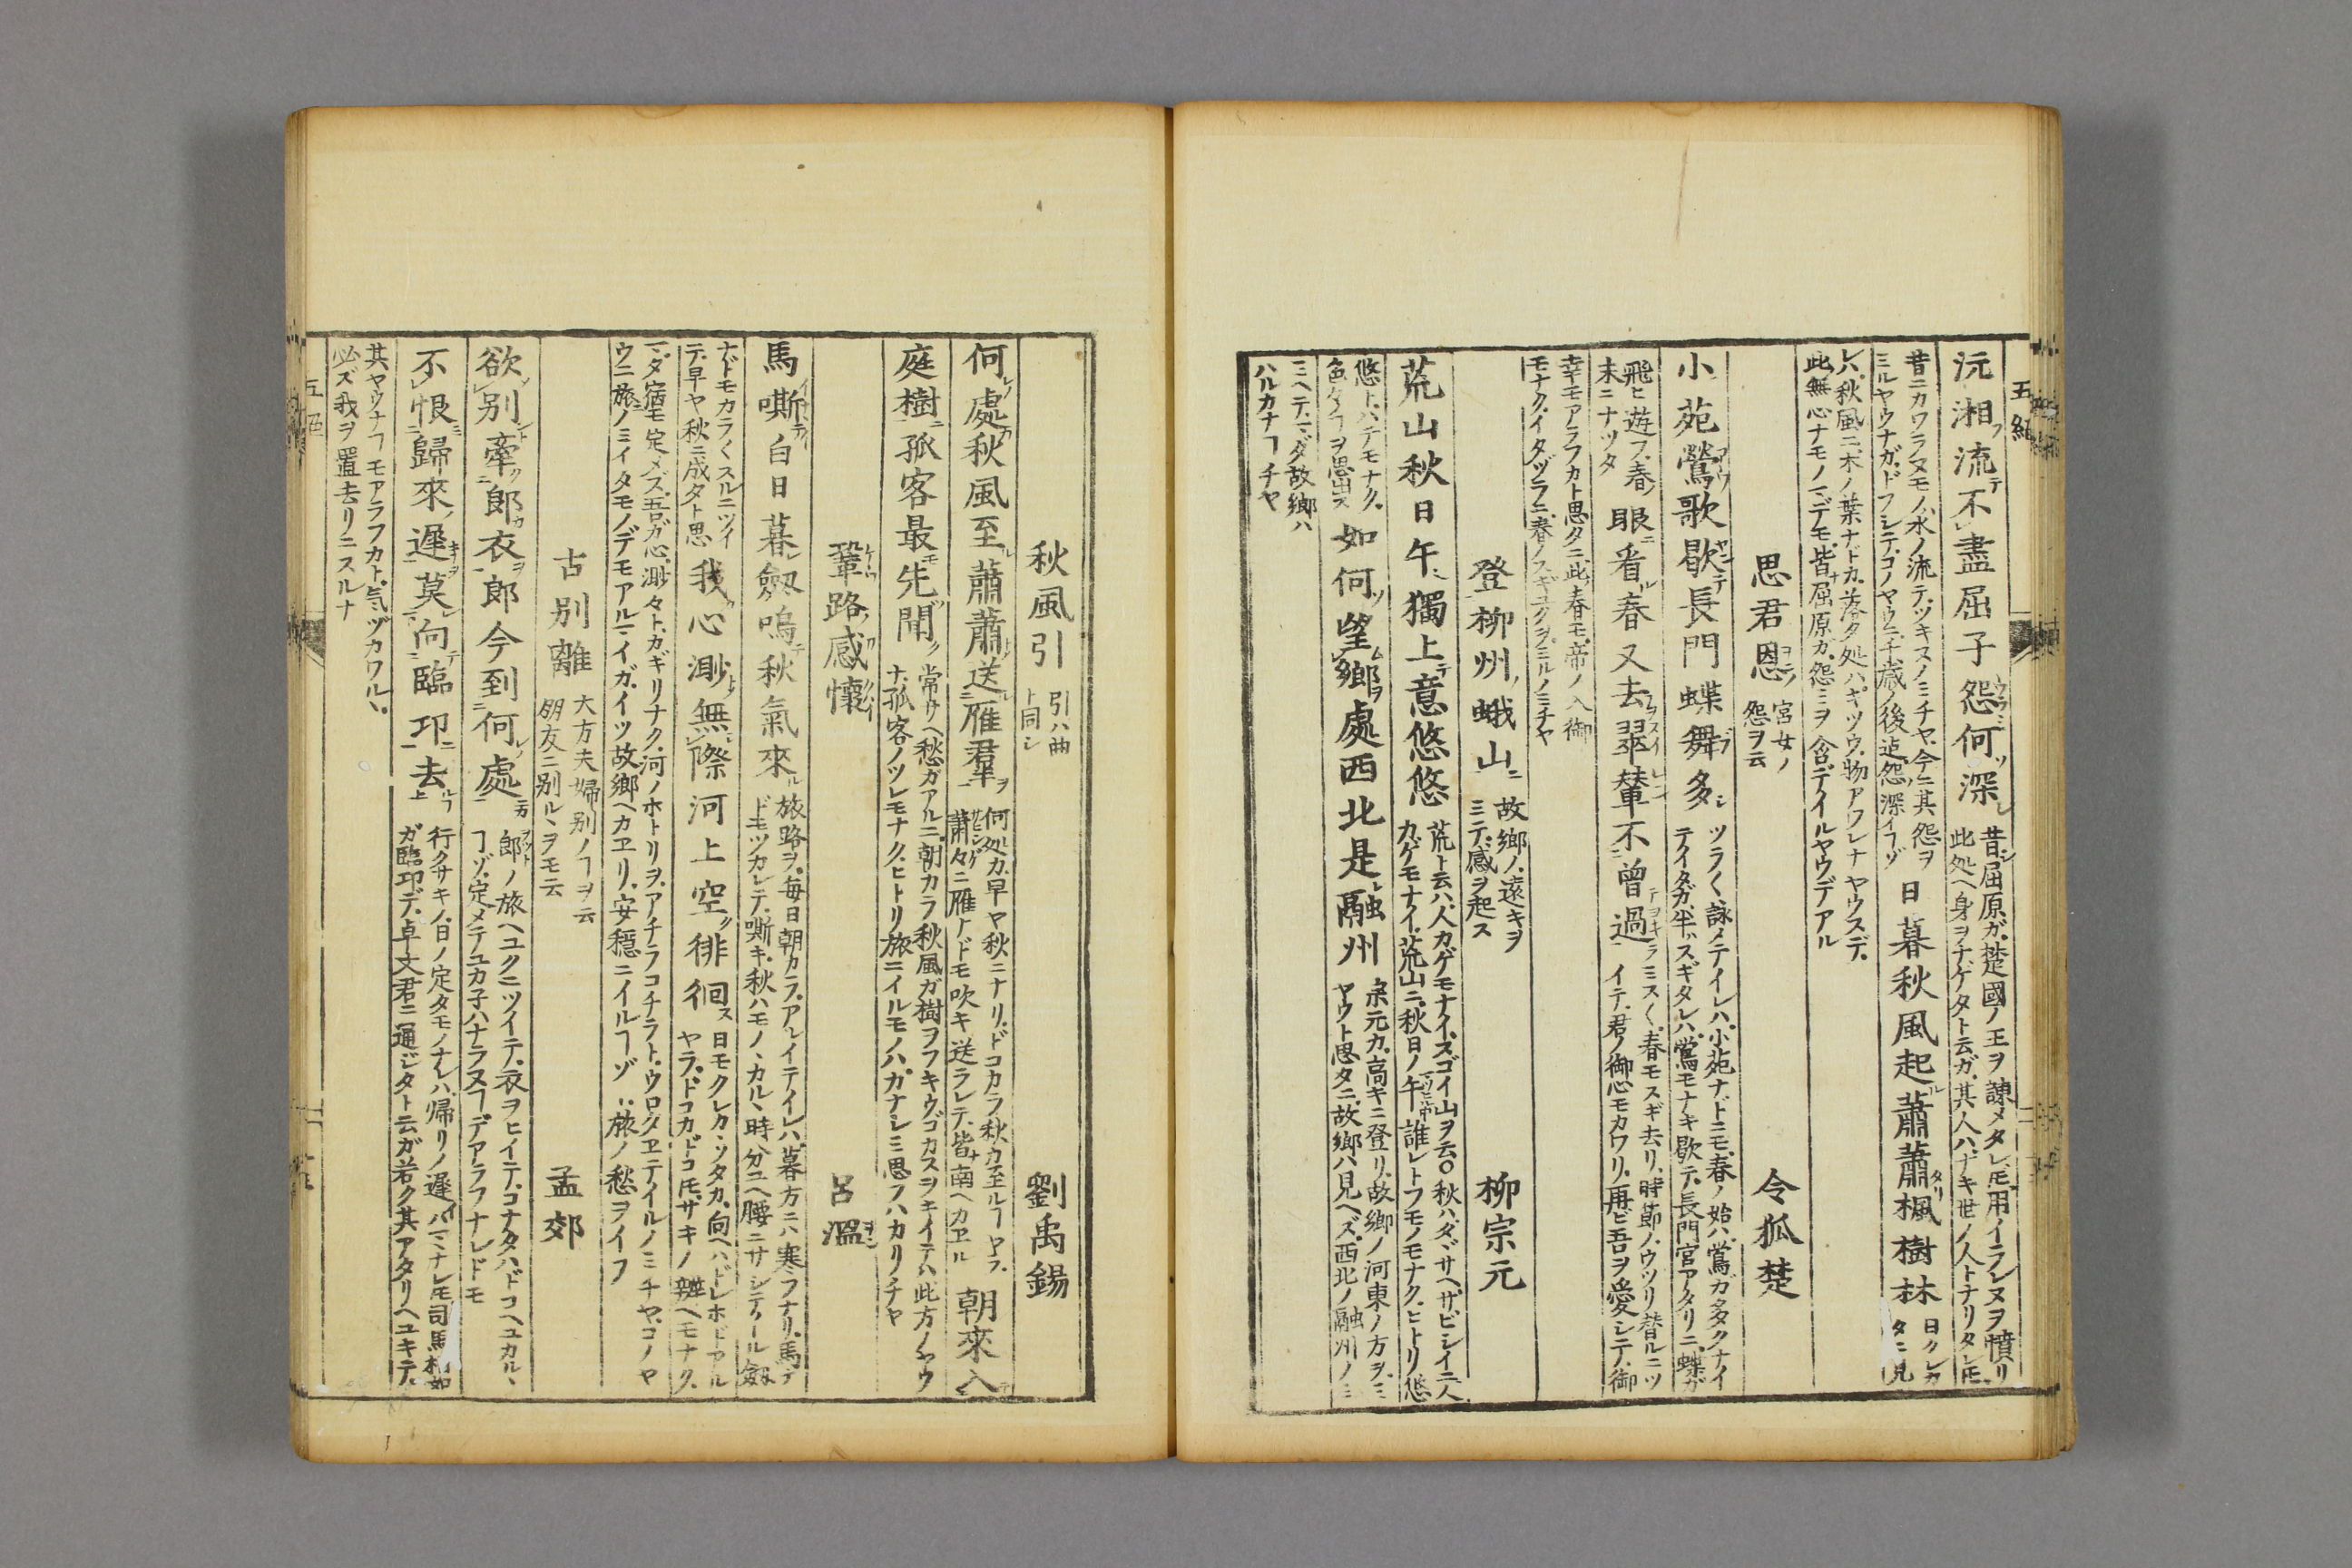 五絶
沅湘流不盡屈子怨何深
昔シ屈原ガ楚國ノ王ヲ諫メタレ𪜈用イラレヌヲ憤リ
此処ヘ身ヲナゲタト云ガ其人ハナキ世ノ人トナリタレ𪜈
昔ニカワラヌモノハ水ノ流テツキヌノミチヤ今ニ其怨ヲ
ミルヤウナガドフシテコノヤウニ千歳ノ後迠怨深イヿゾ
日暮秋風起蕭蕭楓樹林
日クレカタニ見
レハ秋風ニ木ノ葉ナドカ落タ処ハキツウ物アワレナヤウスデ
此無心ナモノマデモ皆ナ屈原ガ怨ミヲ含デイルヤウデアル
思君恩
宮女ノ
怨ヲ云
令狐楚
小苑鶯歌歇長門蝶舞多
ツラ〱詠メテイレハ小苑ナドニモ春ノ始ハ鶯ガ多クナイ
テイタガ半ハスギタレハ鶯モナキ歇テ長門宮アタリニ蝶ガ
飛ヒ遊フ春ノ
末ニナツタ
眼看春又去翠輦不曾過
ミス〱春モスギ去リ時節ノウツリ替ルニツ
イテ君ノ御心モカワリ再ビ吾ヲ愛シテ御
幸モアラフカト思タニ此春モ帝ノ入御
モナクイタヅラニ春ノスギユクヲミルノミチヤ
登柳州蛾山
故郷ノ遠キヲ
ミテ感ヲ起ス
柳宗元
荒山秋日午獨上意悠悠
荒ト云ハ人カゲモナイスゴイ山ヲ云○秋ハタヾサヘサビシイニ人
カゲモナイ荒山ニ秋日ノ午誰レトフモノモナクヒトリ悠
悠トハテモナク
色々ノヿヲ思出ス
如何望鄉處西北是融州
宗元カ高キニ登リ故郷ノ河東ノ方ヲミ
ヤウト思タニ故郷ハ見ヘズ西北ノ融州ノミ
ミヘテマダ故郷ハ
ハルカナヿチヤ
秋風引
引ハ曲
ト同シ
劉禹錫
何處秋風至蕭蕭送雁群
何処カ早ヤ秋ニナリドコカラ秋カ至ルヿヤラ
蕭々ニ雁ナドモ吹キ送ラレテ皆ナ南ヘカヱル
朝來入
庭樹孤客最先聞
常サヘ愁ガアルニ朝カラ秋風ガ樹ヲフキウゴカスヲキイテハ此方ノヤウ
ナ孤客ノツレモナクヒトリ旅ニイルモノハカナシミ思フハカリチヤ
鞏路感懷
呂溫
馬嘶白日暮劔鳴秋氣來
旅路ヲ毎日朝カラアルイテイレハ暮方ニハ寒フナリ馬ナ
ドモツカレテ嘶キ秋ハモノヽカルヽ時分ユヘ腰ニサシテイル劔
ナドモカラ〱スルニツイ
テ早ヤ秋ニ成タト思
我心渺無際河上空徘徊
日モクレカヽツタカ向ヘハドレホドアル
ヤラドコカドコ𪜈サキノ辨ヘモナク
マダ宿モ定メズ吾ガ心渺々トカギリナク河ノホトリヲアチラコチラトウロタヱテイルノミチヤコノヤ
ウニ旅ノミイタモノデモアルマイガイツ故郷ヘカヱリ安穏ニイルヿゾ旅ノ愁ヲイフ
古别離
大方夫婦别ノヿヲ云
朋友ニ别ルヽヲモ云
孟郊
欲别牽郎衣郎今到何處
郎ノ旅ヘユクニツイテ衣ヲヒイテコナタハドコヘユカルヽ
ヿゾ定メテユカ子ハナラヌヿデアラフナレドモ
不恨歸來遲莫向臨卭去
行クサキノ日ノ定タモノナレハ帰リノ遲イハマヽナレ𪜈司馬相如
ガ臨卭デ卓文君ニ通ジタト云ガ若ク其アタリヘユキテ
其ヤウナヿモアラフカト気ヅカワルヽ
必ズ我ヲ置去リニスルナ
五絶